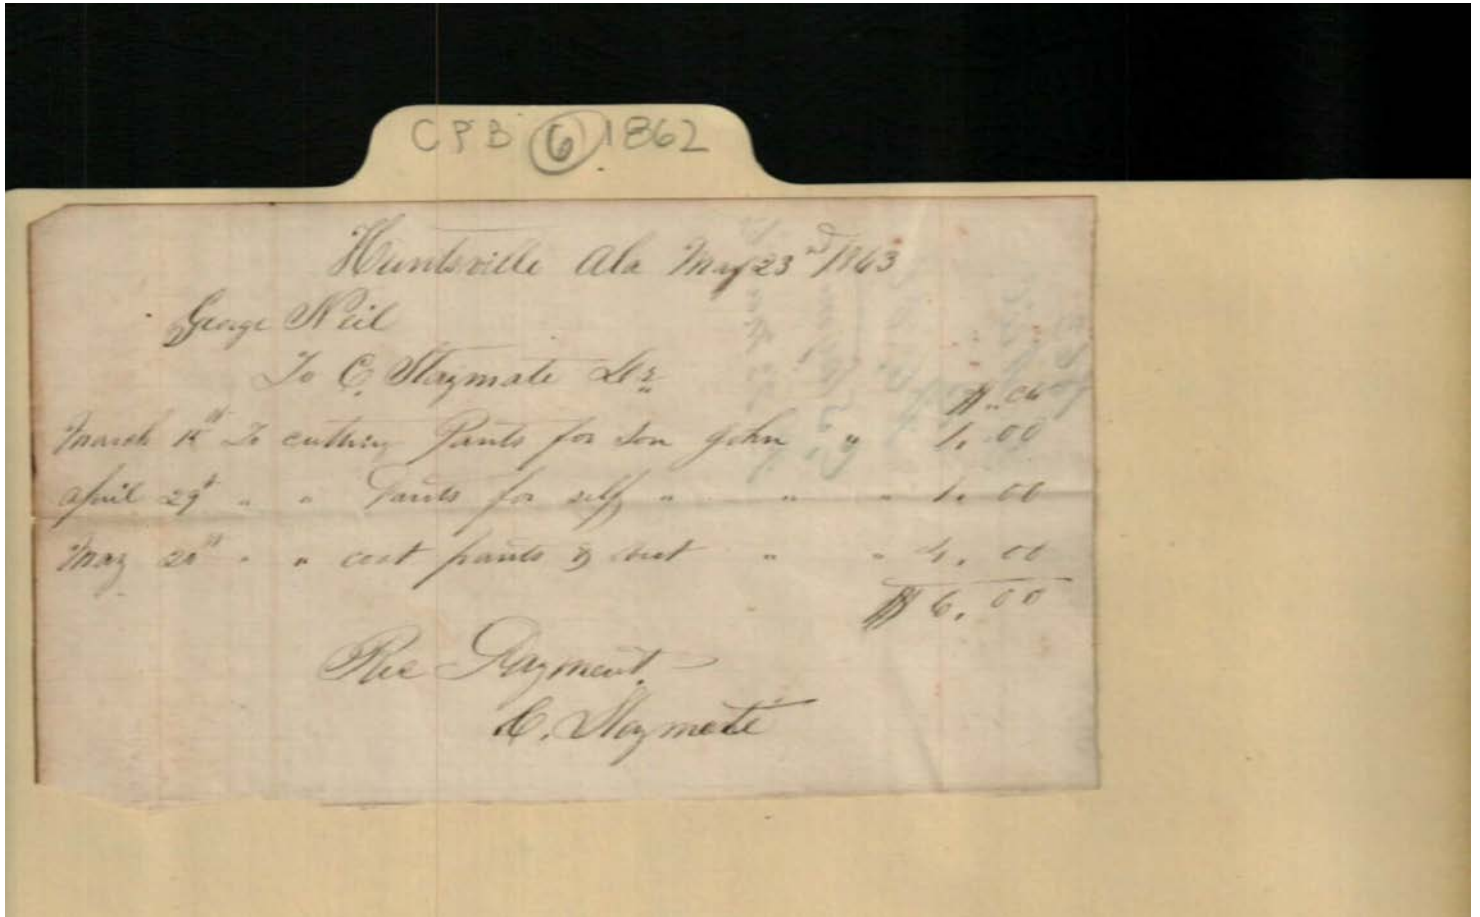 CPB 6 1862
Huntsville Ala May 23rd 1863
George Neil
To C. Staymate Dr
$ .. cts
March 1st To cutting Pants for Son John " 1.00
April 29th " " Pants for self " " " 1.00
May 20th " " coat pants & vest " " 4.00
$ 6.00
Rec Payment
C. Staymate